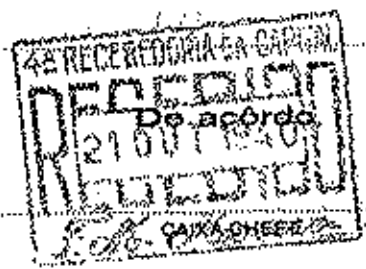 4ª RECEBEDORIA DA CAPITAL
RECEBIDO
De acôrdo
21 OUT 1940
CAIXA-CHEFE